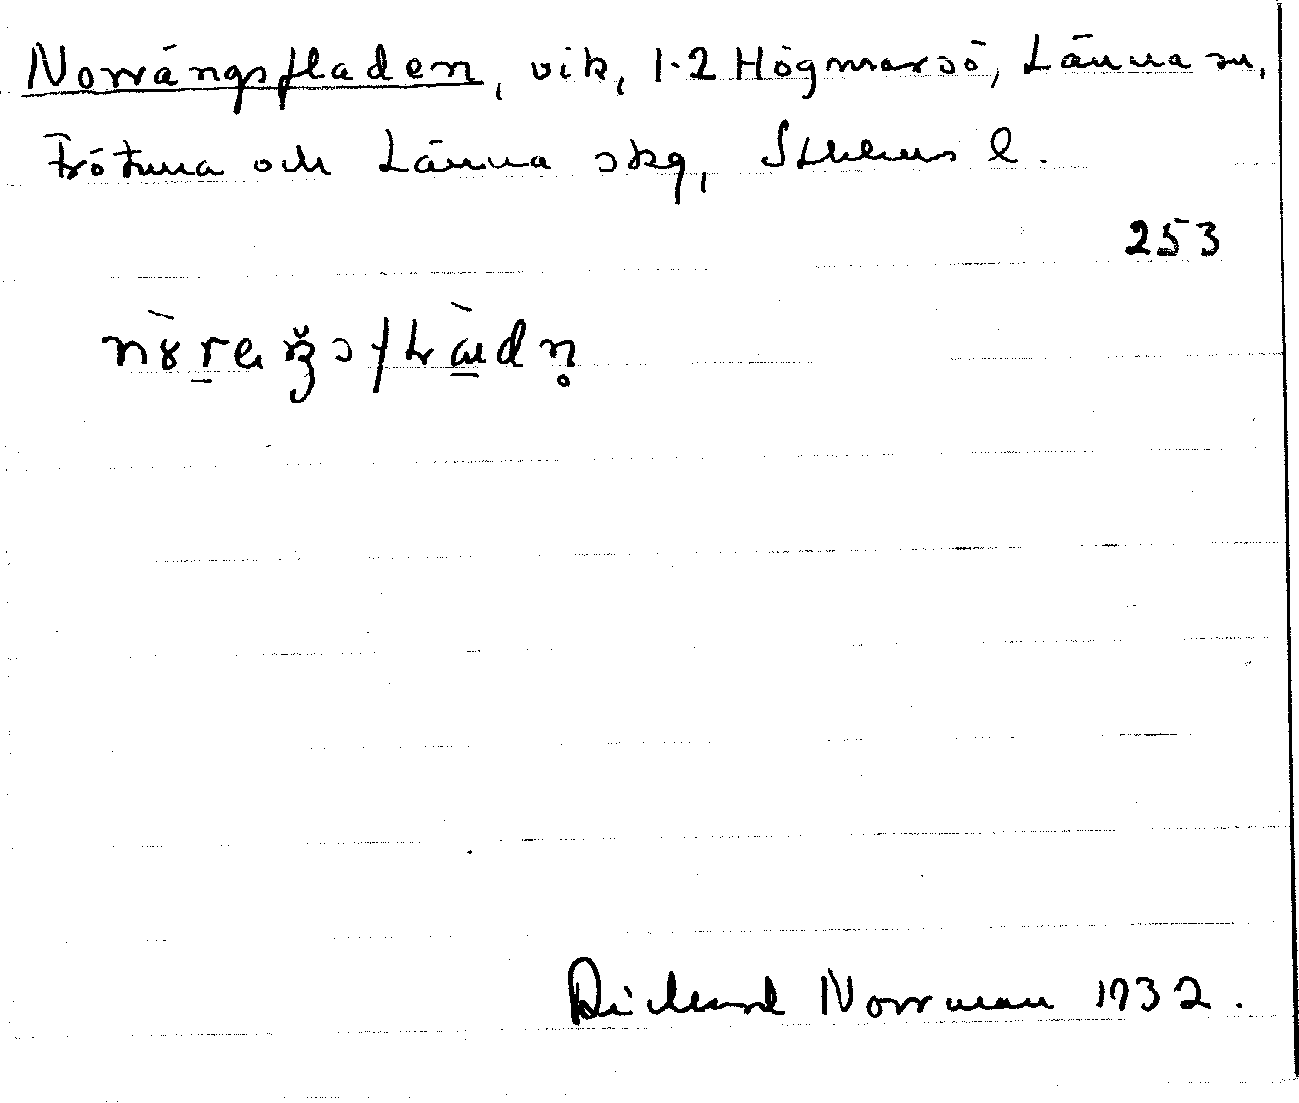 Norrängsfladen, vik, 1-2 Högmarsö, Länna sn,
Frötuna och Länna skg, Sthlms l.
253
Richard Norrman 1932.